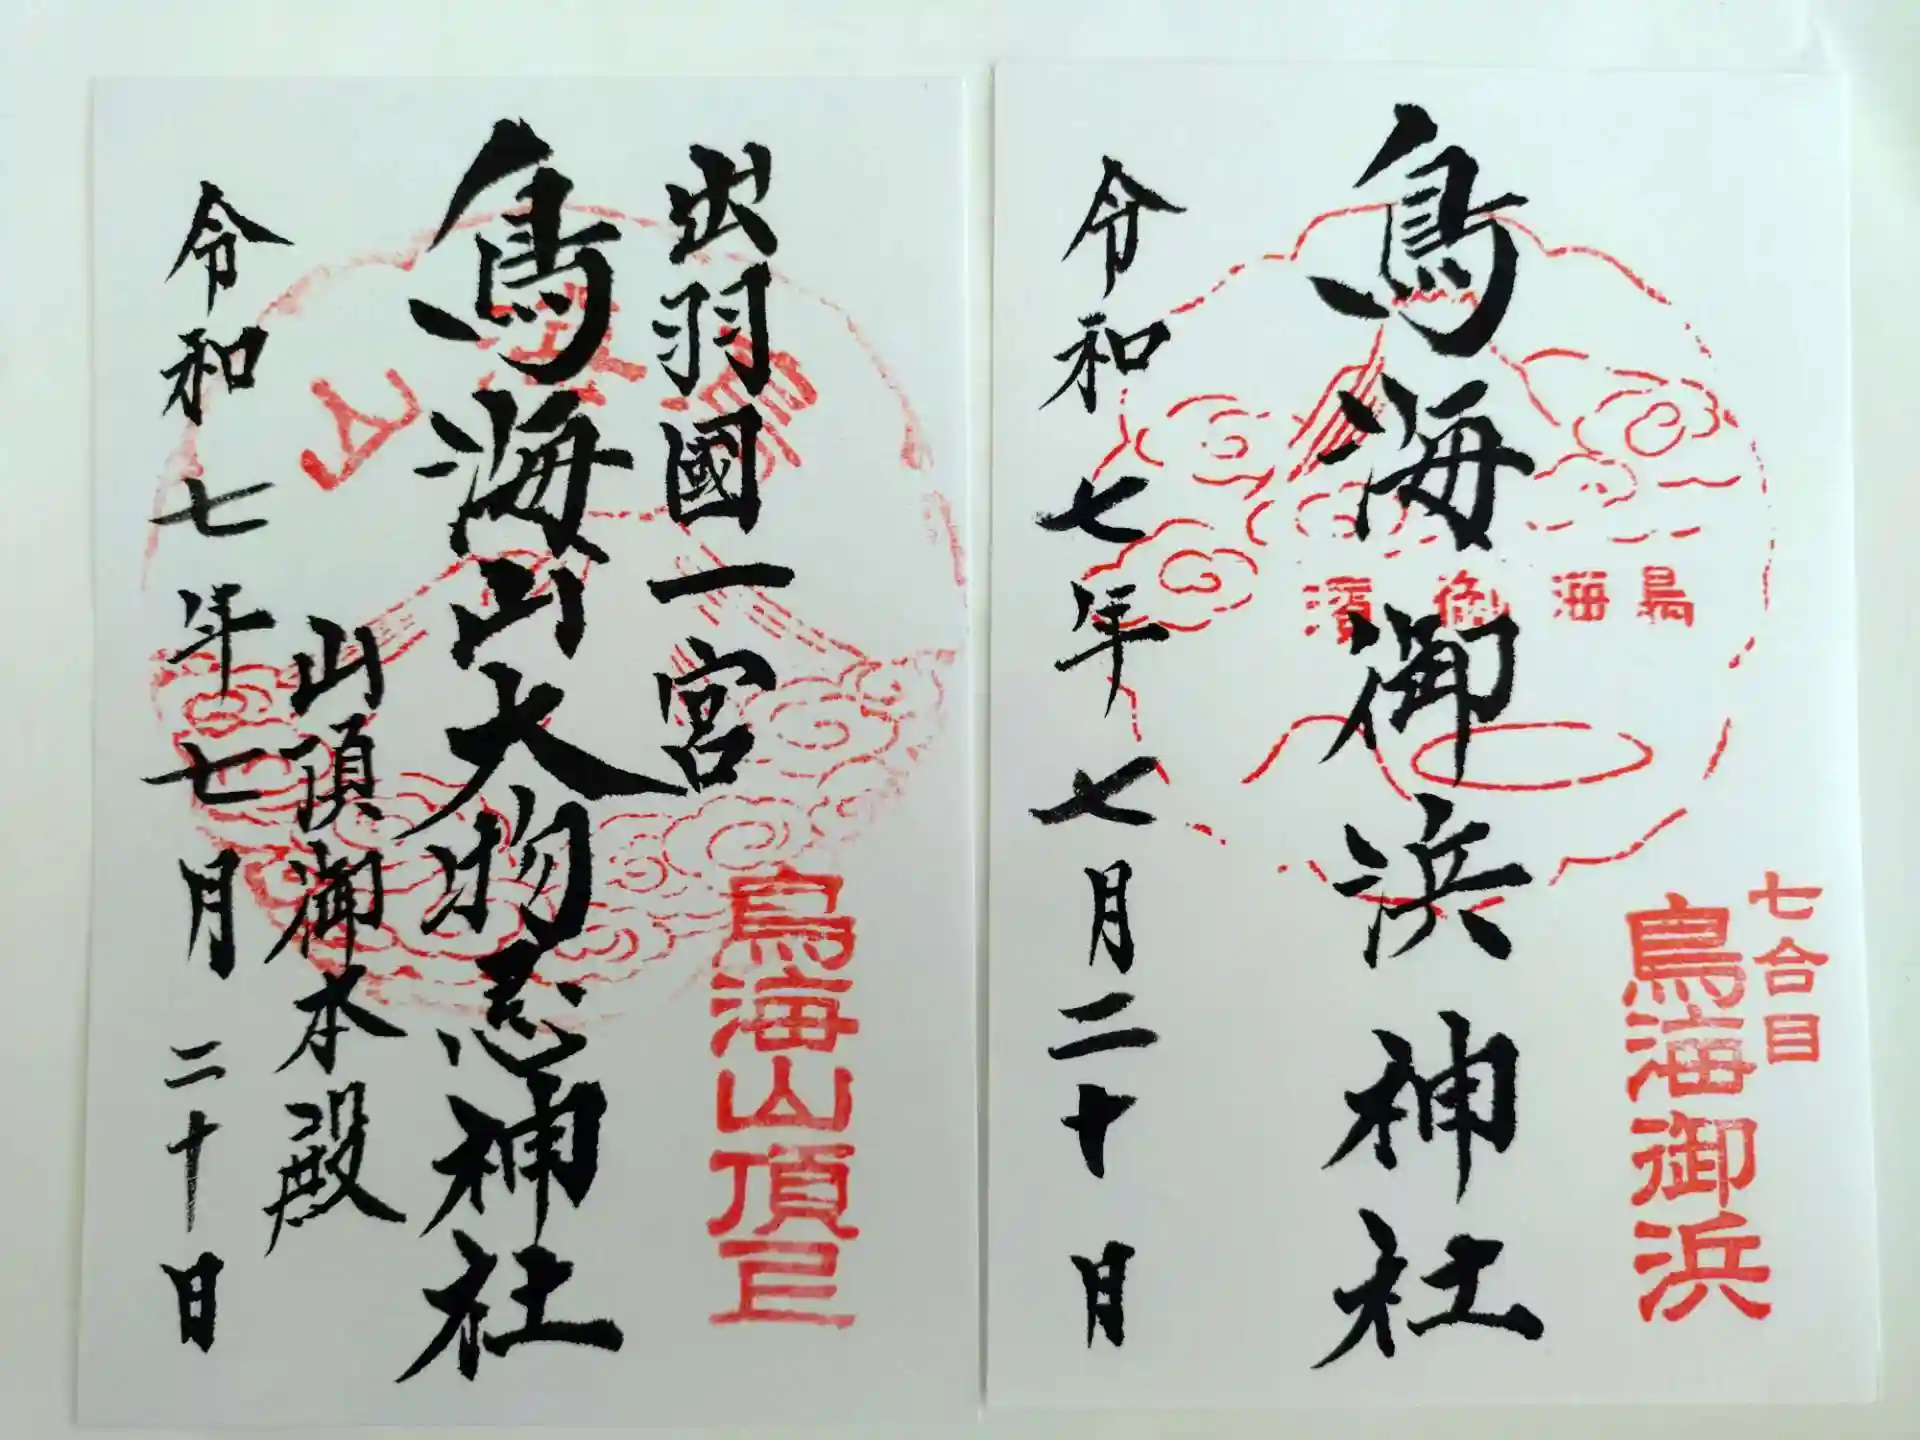 七合目
鳥海御浜
鳥海御浜神社
鳥海御濱
令和七年七月二十日
出羽國一宮
鳥海山頂
鳥海山
鳥海山大物忌神社
山頂御本殿
令和七年七月二十日